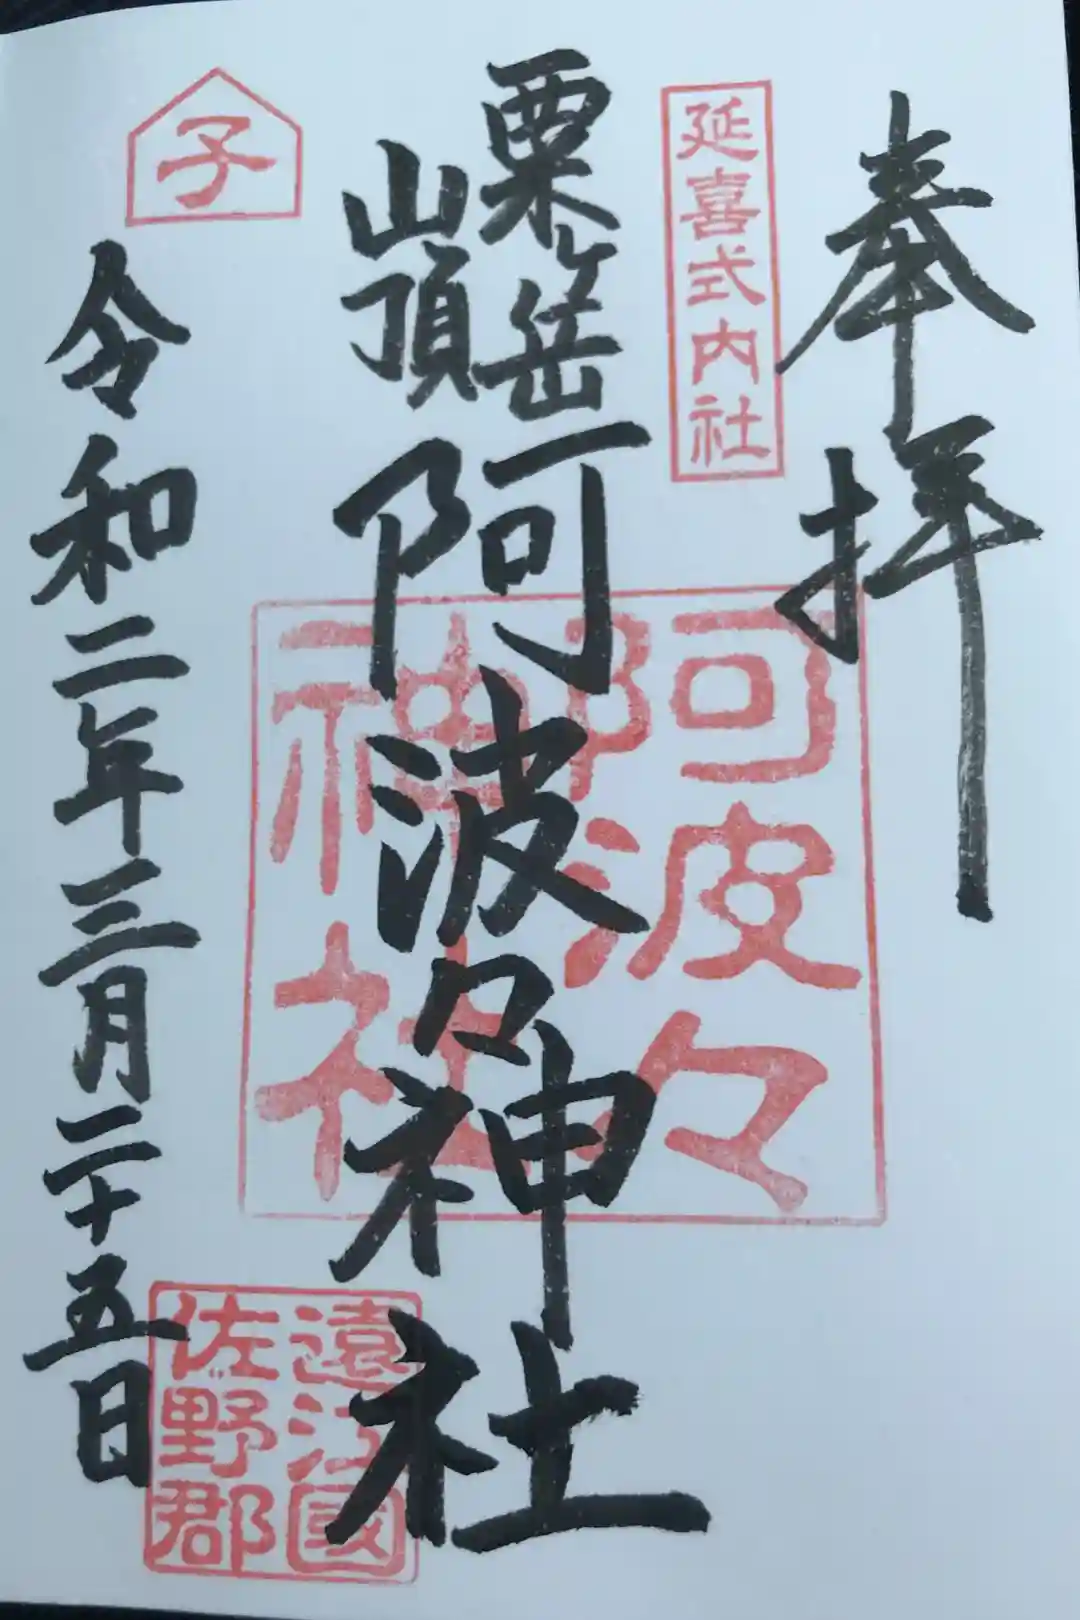 奉拝
延喜式内社
粟ヶ岳
山頂
阿波々神社
阿波々
神社
遠江國
佐野郡
子
令和二年三月二十五日